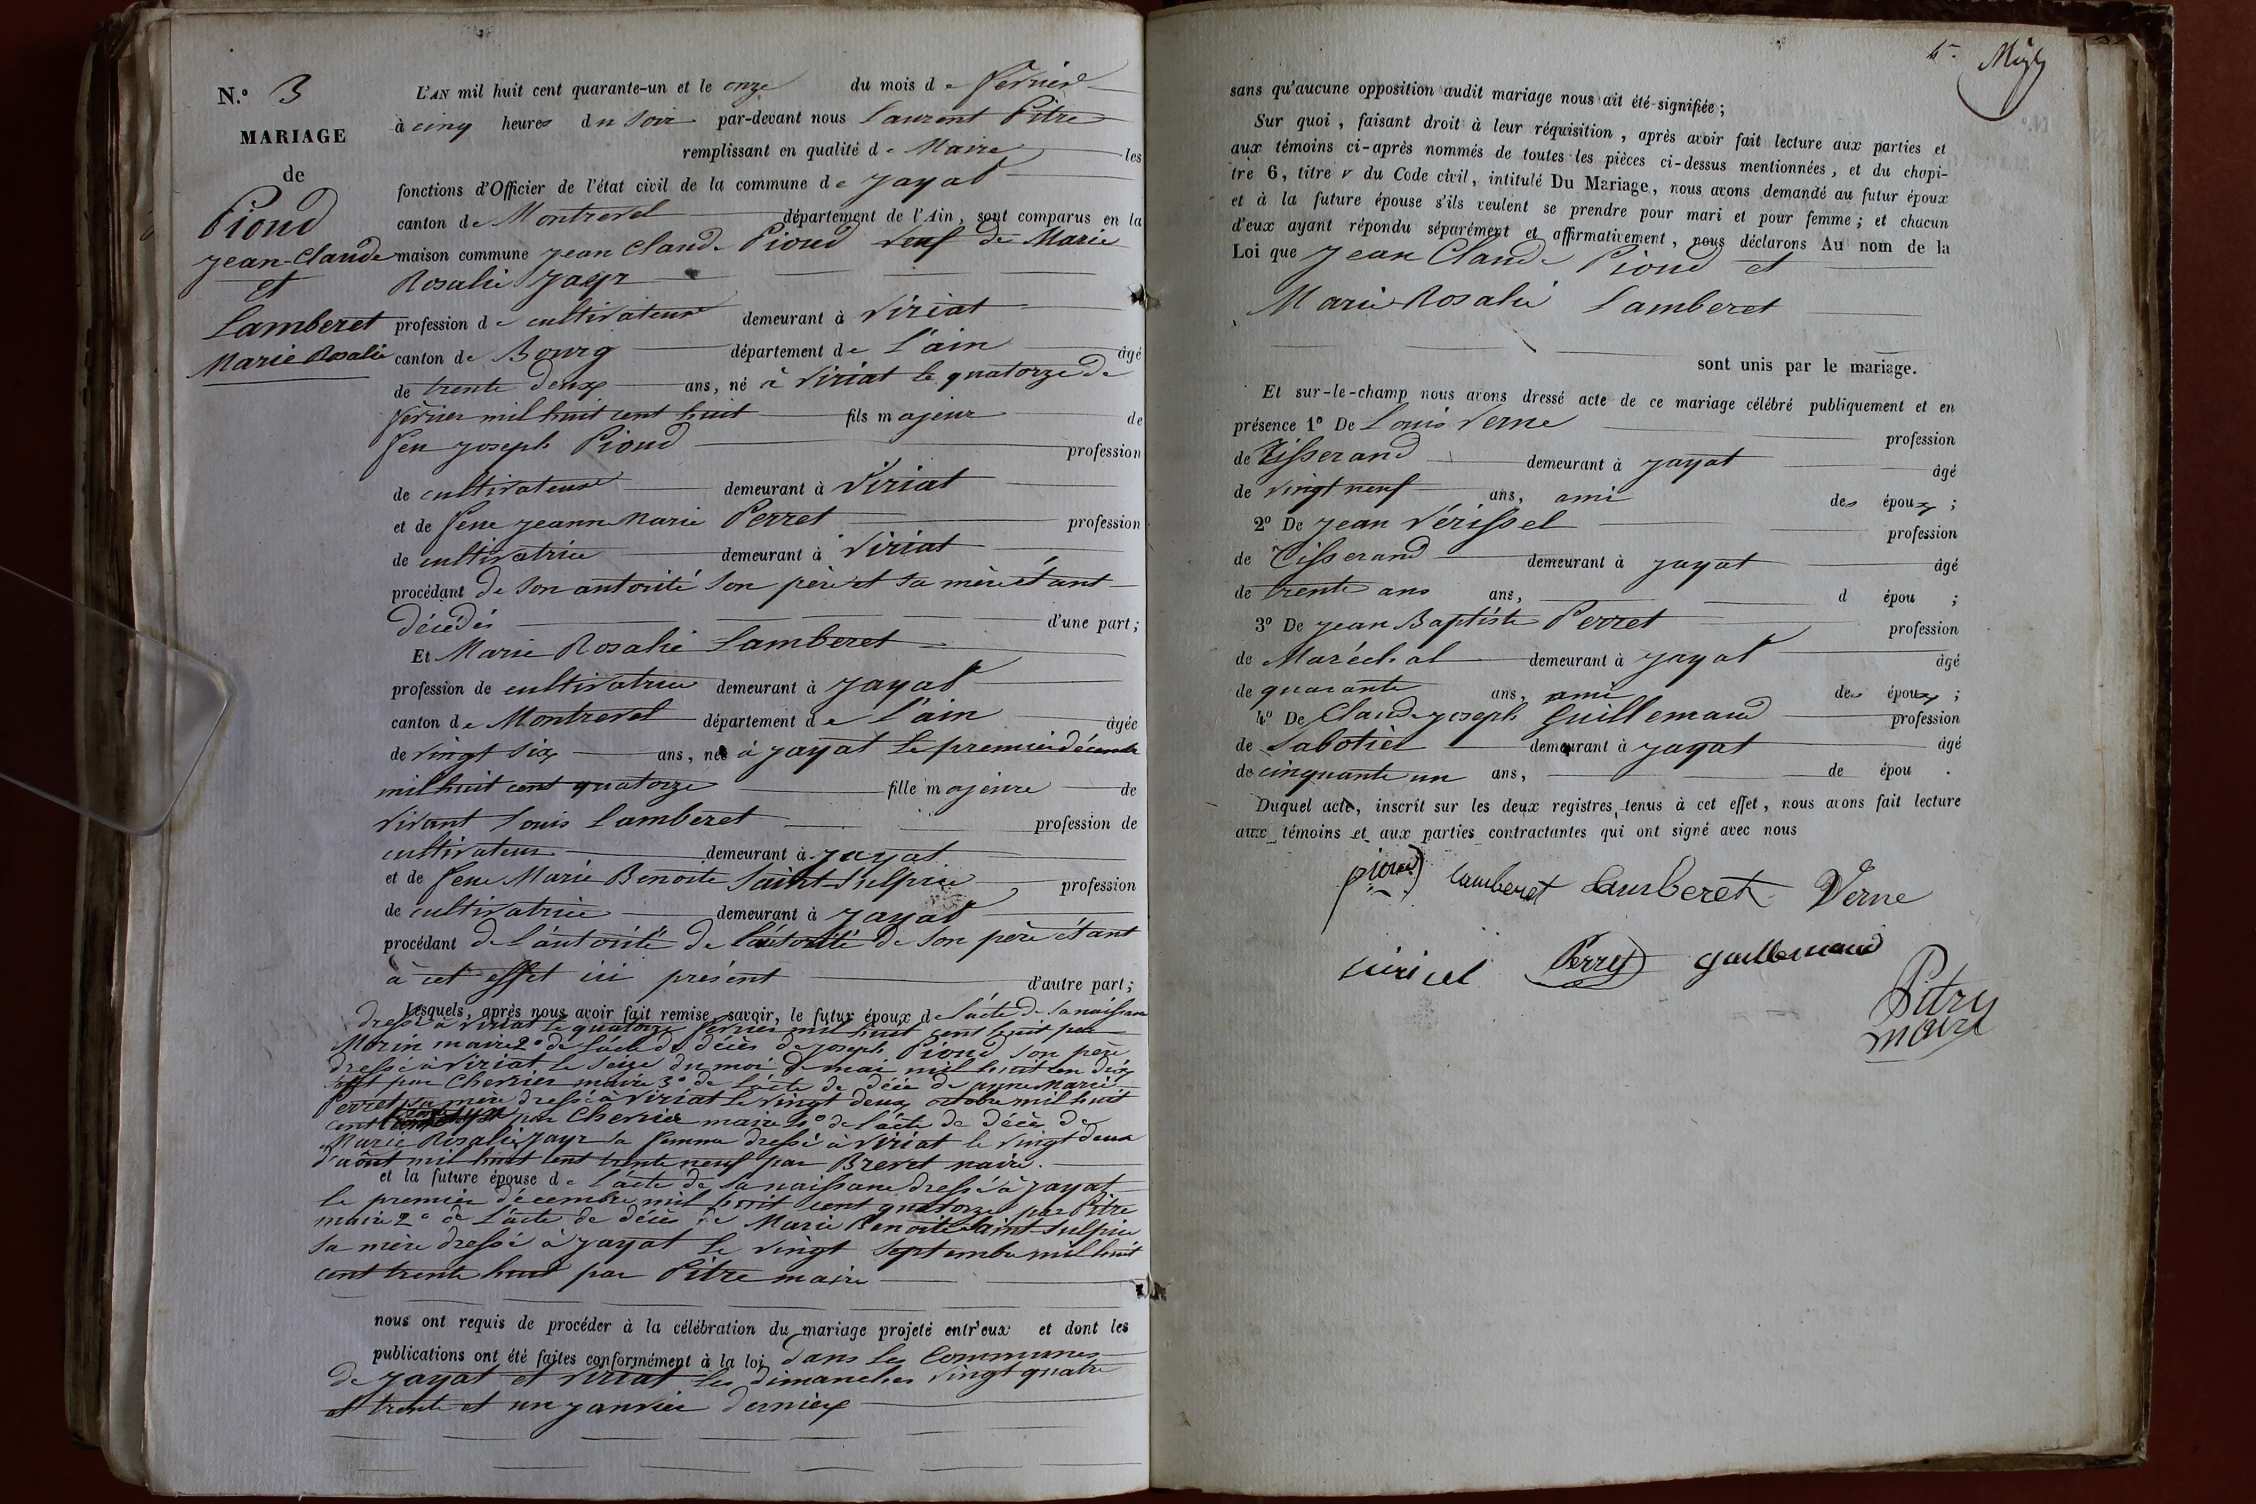 N.° 3
MARIAGE
de
Pioud
Jean-Claude
et
Lamberet
Marie Rosalie
L'AN mil huit cent quarante-un et le onze du mois de février
à cinq heures du soir par-devant nous Laurent Pitre
remplissant en qualité de Maire les
fonctions d'Officier de l'état civil de la commune de Jayat
canton de Montrevel département de l'Ain, sont comparus en la
maison commune Jean Claude Pioud veuf de Marie
Rosalie Jayr
profession de cultivateur demeurant à Viriat
canton de Bourg département de l'ain âgé
de trente deux ans, né à Viriat le quatorze de
février mil huit cent huit fils majeur de
feu Joseph Pioud profession
de cultivateur demeurant à Viriat
et de feue Jeanne Marie Perret profession
de cultivatrice demeurant à Viriat
procédant de son autorité son père et sa mère étant
décédés d'une part;
Et Marie Rosalie Lamberet
profession de cultivatrice demeurant à Jayat
canton de Montrevel département de l'ain âgée
de vingt six ans, née à Jayat le premier décembre
mil huit cent quatorze fille majeure de
vivant Louis Lamberet profession de
cultivateur demeurant à Jayat
et de feue Marie Benoite Saint-Sulpice profession
de cultivatrice demeurant à Jayat
procédant de l'autorité de l'autorité de son père étant
à cet effet ici présent d'autre part;
Lesquels, après nous avoir fait remise, savoir, le futur époux de l'acte de sa naissance
dressé à Viriat le quatorze février mil huit cent huit par
Morin maire 2° de l'acte de décès de Joseph Pioud son père
dressé à Viriat le seize du moi de mai mil huit cen dix
sept par Chevrier maire 3° de l'acte de décè de anne Marie
Perret sa mère dressé à Viriat le vingt deux octobre mil huit
cent par Chevrier maire 4° de l'acte de décè de
Marie Rosalie Jayr sa femme dressé à Viriat le vingt deux
d'août mil huit cent trente neuf par Brevet maire.
et la future épouse de l'acte de sa naissance dressé à Jayat
le premier décembre mil huit cent quatorze par Pitre
maire 2° de l'acte de décès de Marie Benoite Saint-Sulpice
sa mère dressé à Jayat le vingt septembre mil huit
cent trente huit par Pitre maire
nous ont requis de procéder à la célébration du mariage projeté entr'eux et dont les
publications ont été faites conformément à la loi dans les Communes
de Jayat et Viriat les dimanches vingt quatre
et trente et un janvier dernier
sans qu'aucune opposition audit mariage nous ait été signifiée;
Sur quoi, faisant droit à leur réquisition, après avoir fait lecture aux parties et
aux témoins ci-après nommés de toutes les pièces ci-dessus mentionnées, et du chapi-
tre 6, titre v du Code civil, intitulé Du Mariage, nous avons demandé au futur époux
et à la future épouse s'ils veulent se prendre pour mari et pour femme; et chacun
d'eux ayant répondu séparément et affirmativement, nous déclarons Au nom de la
Loi que Jean Claude Pioud et
Marie Rosalie Lamberet
sont unis par le mariage.
Et sur-le-champ nous avons dressé acte de ce mariage célébré publiquement et en
présence 1° De Louis Verne profession
de Tisserand demeurant à Jayat âgé
de vingt neuf ans, ami des époux;
2° De Jean Vérissel profession
de Tisserand demeurant à Jayat âgé
de trente ans ans, d épou ;
3° De Jean Baptiste Perret profession
de Maréchal demeurant à Jayat âgé
de quarante ans, ami des époux;
4° De Claude Joseph Guillemaud profession
de Sabotier demeurant à Jayat âgé
de cinquante un ans, de épou .
Duquel acte, inscrit sur les deux registres tenus à cet effet, nous avons fait lecture
aux témoins et aux parties contractantes qui ont signé avec nous
pioud lamberet Lamberet Verne
Perret guillemaud
Pitre
maire